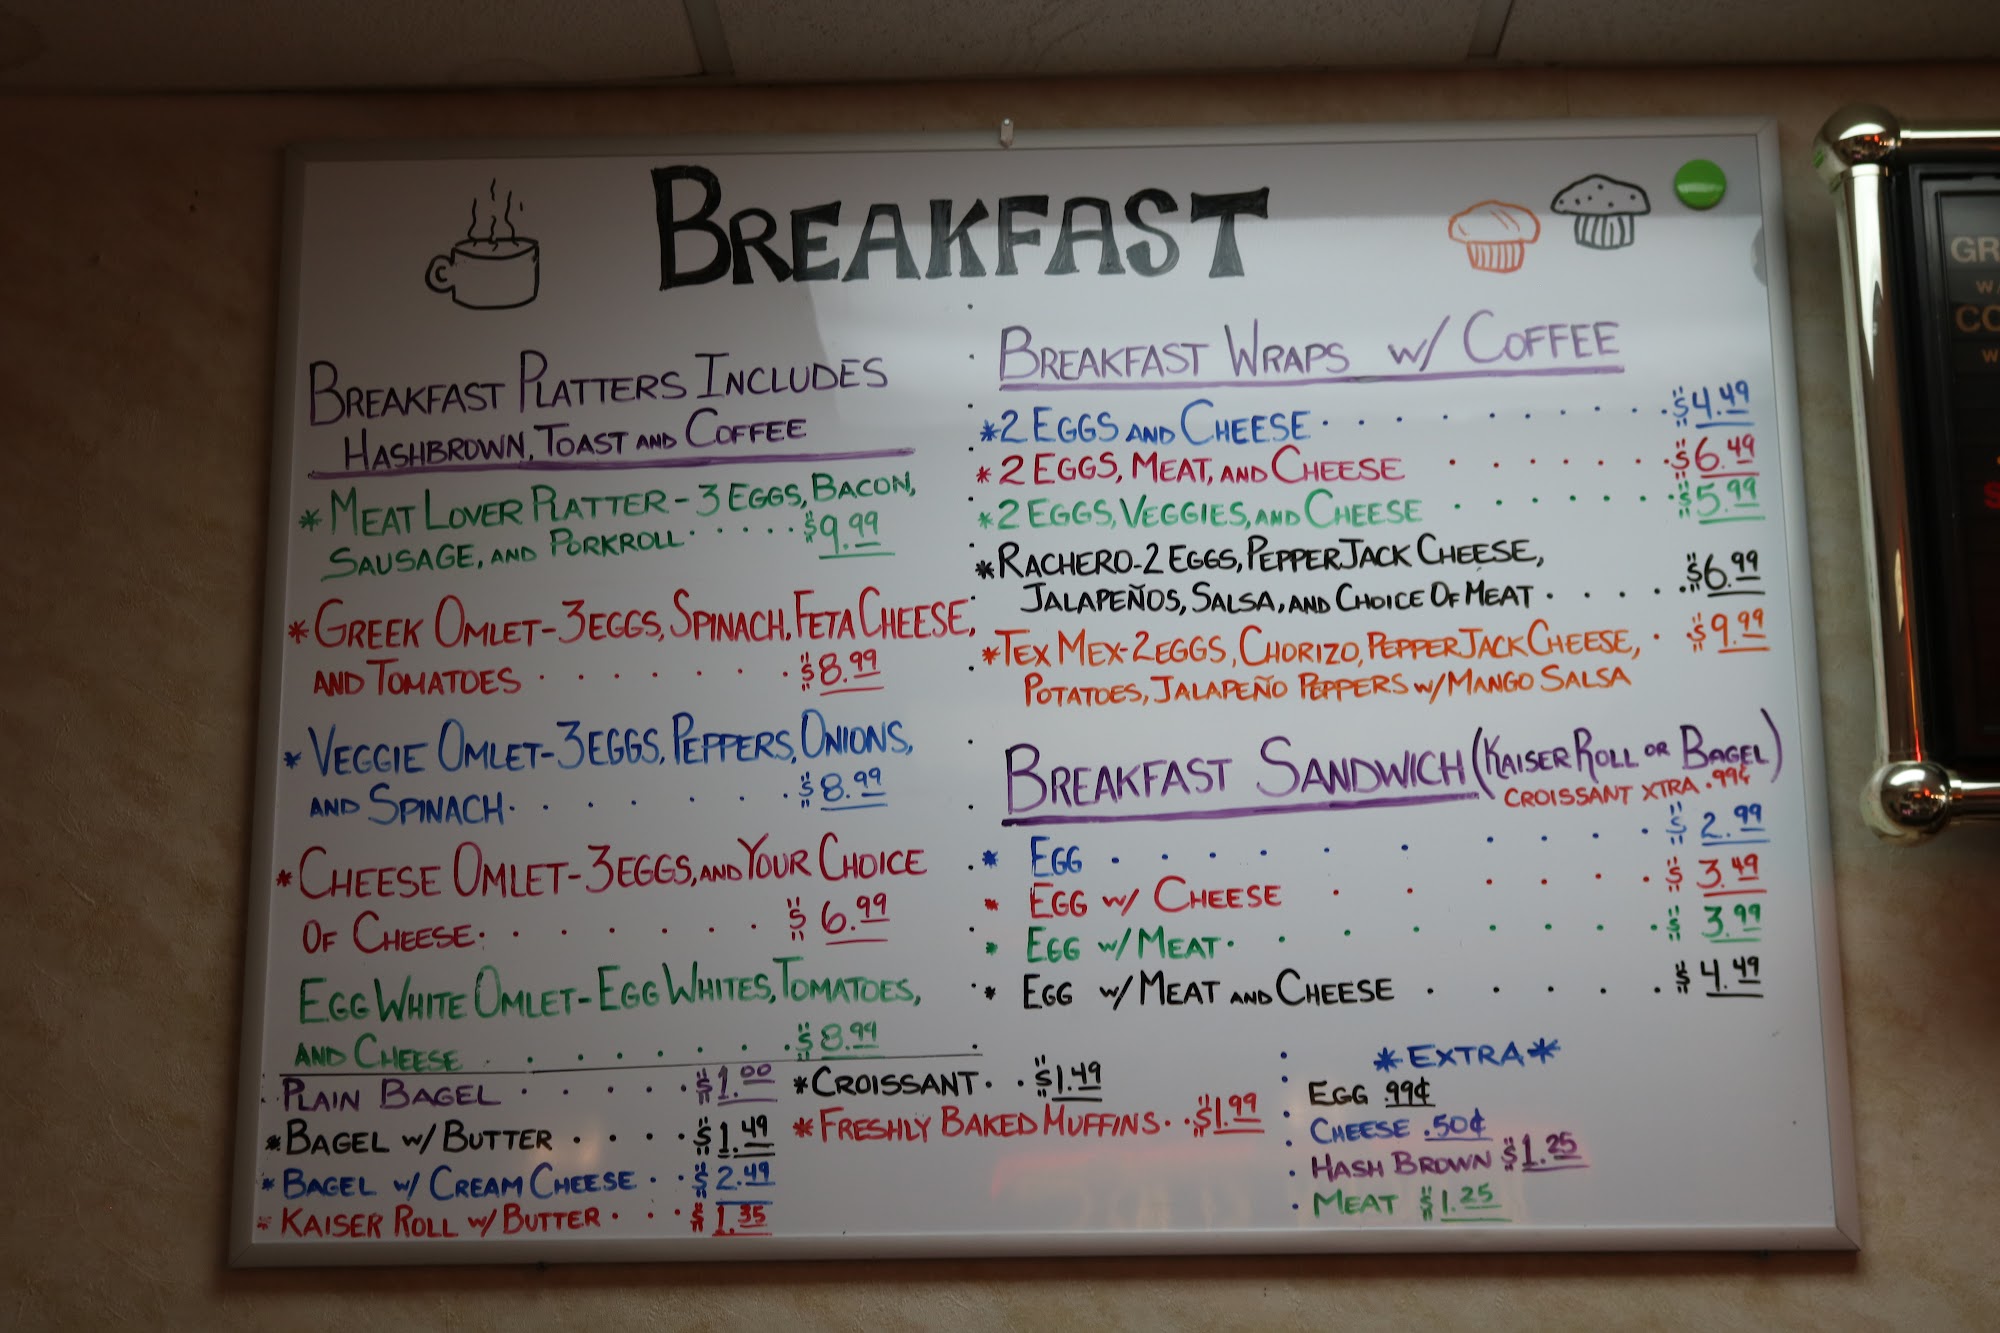 BREAKFAST
BREAKFAST PLATTERS INCLUDES
HASHBROWN, TOAST AND COFFEE
* MEAT LOVER PLATTER - 3 EGGS, BACON,
SAUSAGE, AND PORKROLL · · · · $9.99
* GREEK OMLET - 3 EGGS, SPINACH, FETA CHEESE,
AND TOMATOES · · · · · · · $8.99
* VEGGIE OMLET - 3 EGGS, PEPPERS, ONIONS,
AND SPINACH · · · · · · · $8.99
* CHEESE OMLET - 3 EGGS, AND YOUR CHOICE
OF CHEESE · · · · · · · $6.99
EGG WHITE OMLET - EGG WHITES, TOMATOES,
AND CHEESE · · · · · · · $8.99
PLAIN BAGEL · · · · · $1.00
* BAGEL W/ BUTTER · · · · $1.49
* BAGEL W/ CREAM CHEESE · · $2.49
* KAISER ROLL W/ BUTTER · · · $1.35
* CROISSANT · · $1.49
* FRESHLY BAKED MUFFINS · · $1.99
BREAKFAST WRAPS W/ COFFEE
* 2 EGGS AND CHEESE · · · · · · · · · · $4.49
* 2 EGGS, MEAT, AND CHEESE · · · · · · · $6.49
* 2 EGGS, VEGGIES, AND CHEESE · · · · · · · $5.99
* RACHERO - 2 EGGS, PEPPER JACK CHEESE,
JALAPEÑOS, SALSA, AND CHOICE OF MEAT · · · · · $6.99
* TEX MEX - 2 EGGS, CHORIZO, PEPPER JACK CHEESE, · · $9.99
POTATOES, JALAPEÑO PEPPERS W/ MANGO SALSA
BREAKFAST SANDWICH (KAISER ROLL OR BAGEL)
CROISSANT XTRA .99¢
* EGG · · · · · · · · · · $2.99
* EGG W/ CHEESE · · · · · · $3.49
* EGG W/ MEAT · · · · · · · · $3.99
* EGG W/ MEAT AND CHEESE · · · · · $4.49
* EXTRA *
EGG .99¢
· CHEESE .50¢
· HASH BROWN $1.25
· MEAT $1.25
GR
CO